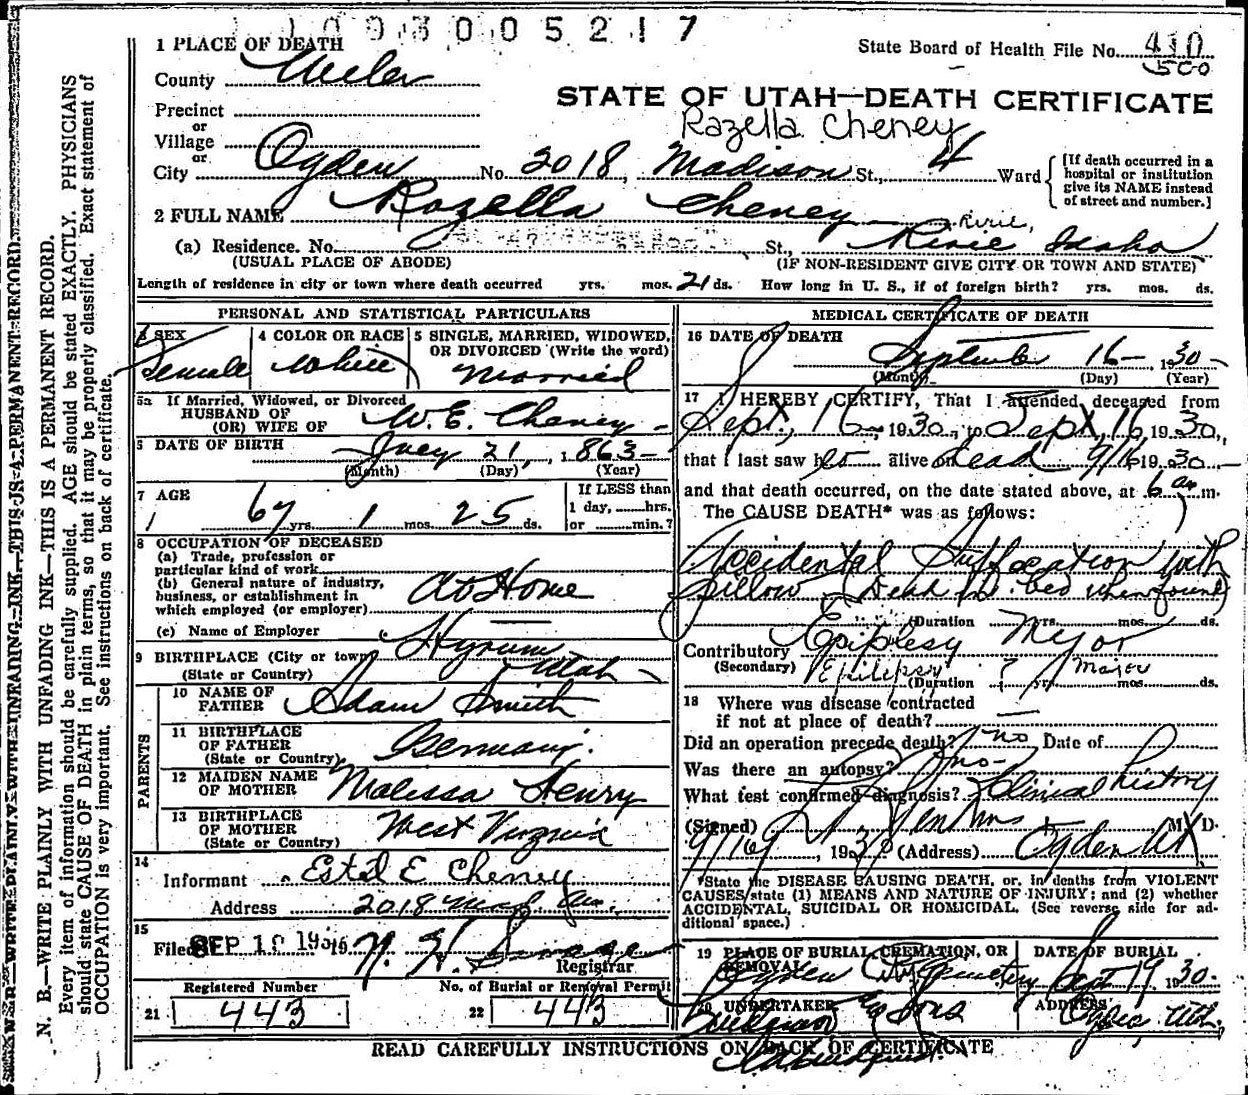 1 0 9 3 0 0 5 2 1 7
State Board of Health File No. 410
500
1 PLACE OF DEATH
County Weber
STATE OF UTAH—DEATH CERTIFICATE
Precinct
or
Village
Razella Cheney
or
City Ogden No. 2018, Madison St., 4 Ward
[If death occurred in a hospital or institution give its NAME instead of street and number.]
2 FULL NAME Rozella Cheney
(a) Residence. No. St., Ririe, Idaho
Ririe,
(USUAL PLACE OF ABODE) (IF NON-RESIDENT GIVE CITY OR TOWN AND STATE)
Length of residence in city or town where death occurred yrs. mos. 21 ds. How long in U. S., if of foreign birth? yrs. mos. ds.
PERSONAL AND STATISTICAL PARTICULARS
3 SEX Female
4 COLOR OR RACE White
5 SINGLE, MARRIED, WIDOWED, OR DIVORCED (Write the word) Married
5a If Married, Widowed, or Divorced
HUSBAND OF
(OR) WIFE OF W. E. Cheney
6 DATE OF BIRTH 21, 1863
(Month) (Day) (Year)
7 AGE 67 yrs. 1 mos. 25 ds.
If LESS than
1 day, hrs.
or min.?
8 OCCUPATION OF DECEASED
(a) Trade, profession or
particular kind of work
(b) General nature of industry,
business, or establishment in
which employed (or employer) At Home
(c) Name of Employer
9 BIRTHPLACE (City or town) Hyrum
(State or Country) Utah
PARENTS
10 NAME OF FATHER Adam Smith
11 BIRTHPLACE OF FATHER (State or Country) Germany.
12 MAIDEN NAME OF MOTHER Malissa Henry
13 BIRTHPLACE OF MOTHER (State or Country) West Virginia
14
Informant Estel E Cheney
Address 2018 Mad. Ave.
15
Filed SEP 1 193
Registrar
Registered Number
No. of Burial or Removal Permit
21 443 22 443
MEDICAL CERTIFICATE OF DEATH
16 DATE OF DEATH September 16 1930
(Month) (Day) (Year)
17 I HEREBY CERTIFY, That I attended deceased from
Sept, 16, 1930, to Sept, 16, 1930,
that I last saw alive on dead 9/16 1930
and that death occurred, on the date stated above, at 6 am m.
The CAUSE DEATH* was as follows:
Accidental Suffocation with
pillow (Dead in bed when found)
(Duration yrs. mos. ds.
Contributory Epiplesy Major
(Secondary) Epilepsy ? Major
(Duration yrs. mos. ds.
18 Where was disease contracted
if not at place of death? —
Did an operation precede death? no Date of
Was there an autopsy? no-
What test confirmed diagnosis? Clinical history
(Signed) Jenkins M D.
9/16, 1930 (Address) Ogden Ut
*State the DISEASE CAUSING DEATH, or, in deaths from VIOLENT
CAUSES, state (1) MEANS AND NATURE OF INJURY; and (2) whether
ACCIDENTAL, SUICIDAL OR HOMICIDAL. (See reverse side for ad-
ditional space.)
19 PLACE OF BURIAL, CREMATION, OR REMOVAL Ogden City Cemetery
DATE OF BURIAL Sept 19 1930
20 UNDERTAKER & Sons
ADDRESS Ogden Utah.
READ CAREFULLY INSTRUCTIONS ON BACK OF CERTIFICATE
WRITE PLAINLY WITH UNFADING INK—THIS IS A PERMANENT RECORD.
N. B.—WRITE PLAINLY WITH UNFADING INK—THIS IS A PERMANENT RECORD.
Every item of information should be carefully supplied. AGE should be stated EXACTLY. PHYSICIANS
should state CAUSE OF DEATH in plain terms, so that it may be properly classified. Exact statement of
OCCUPATION is very important. See instructions on back of certificate.